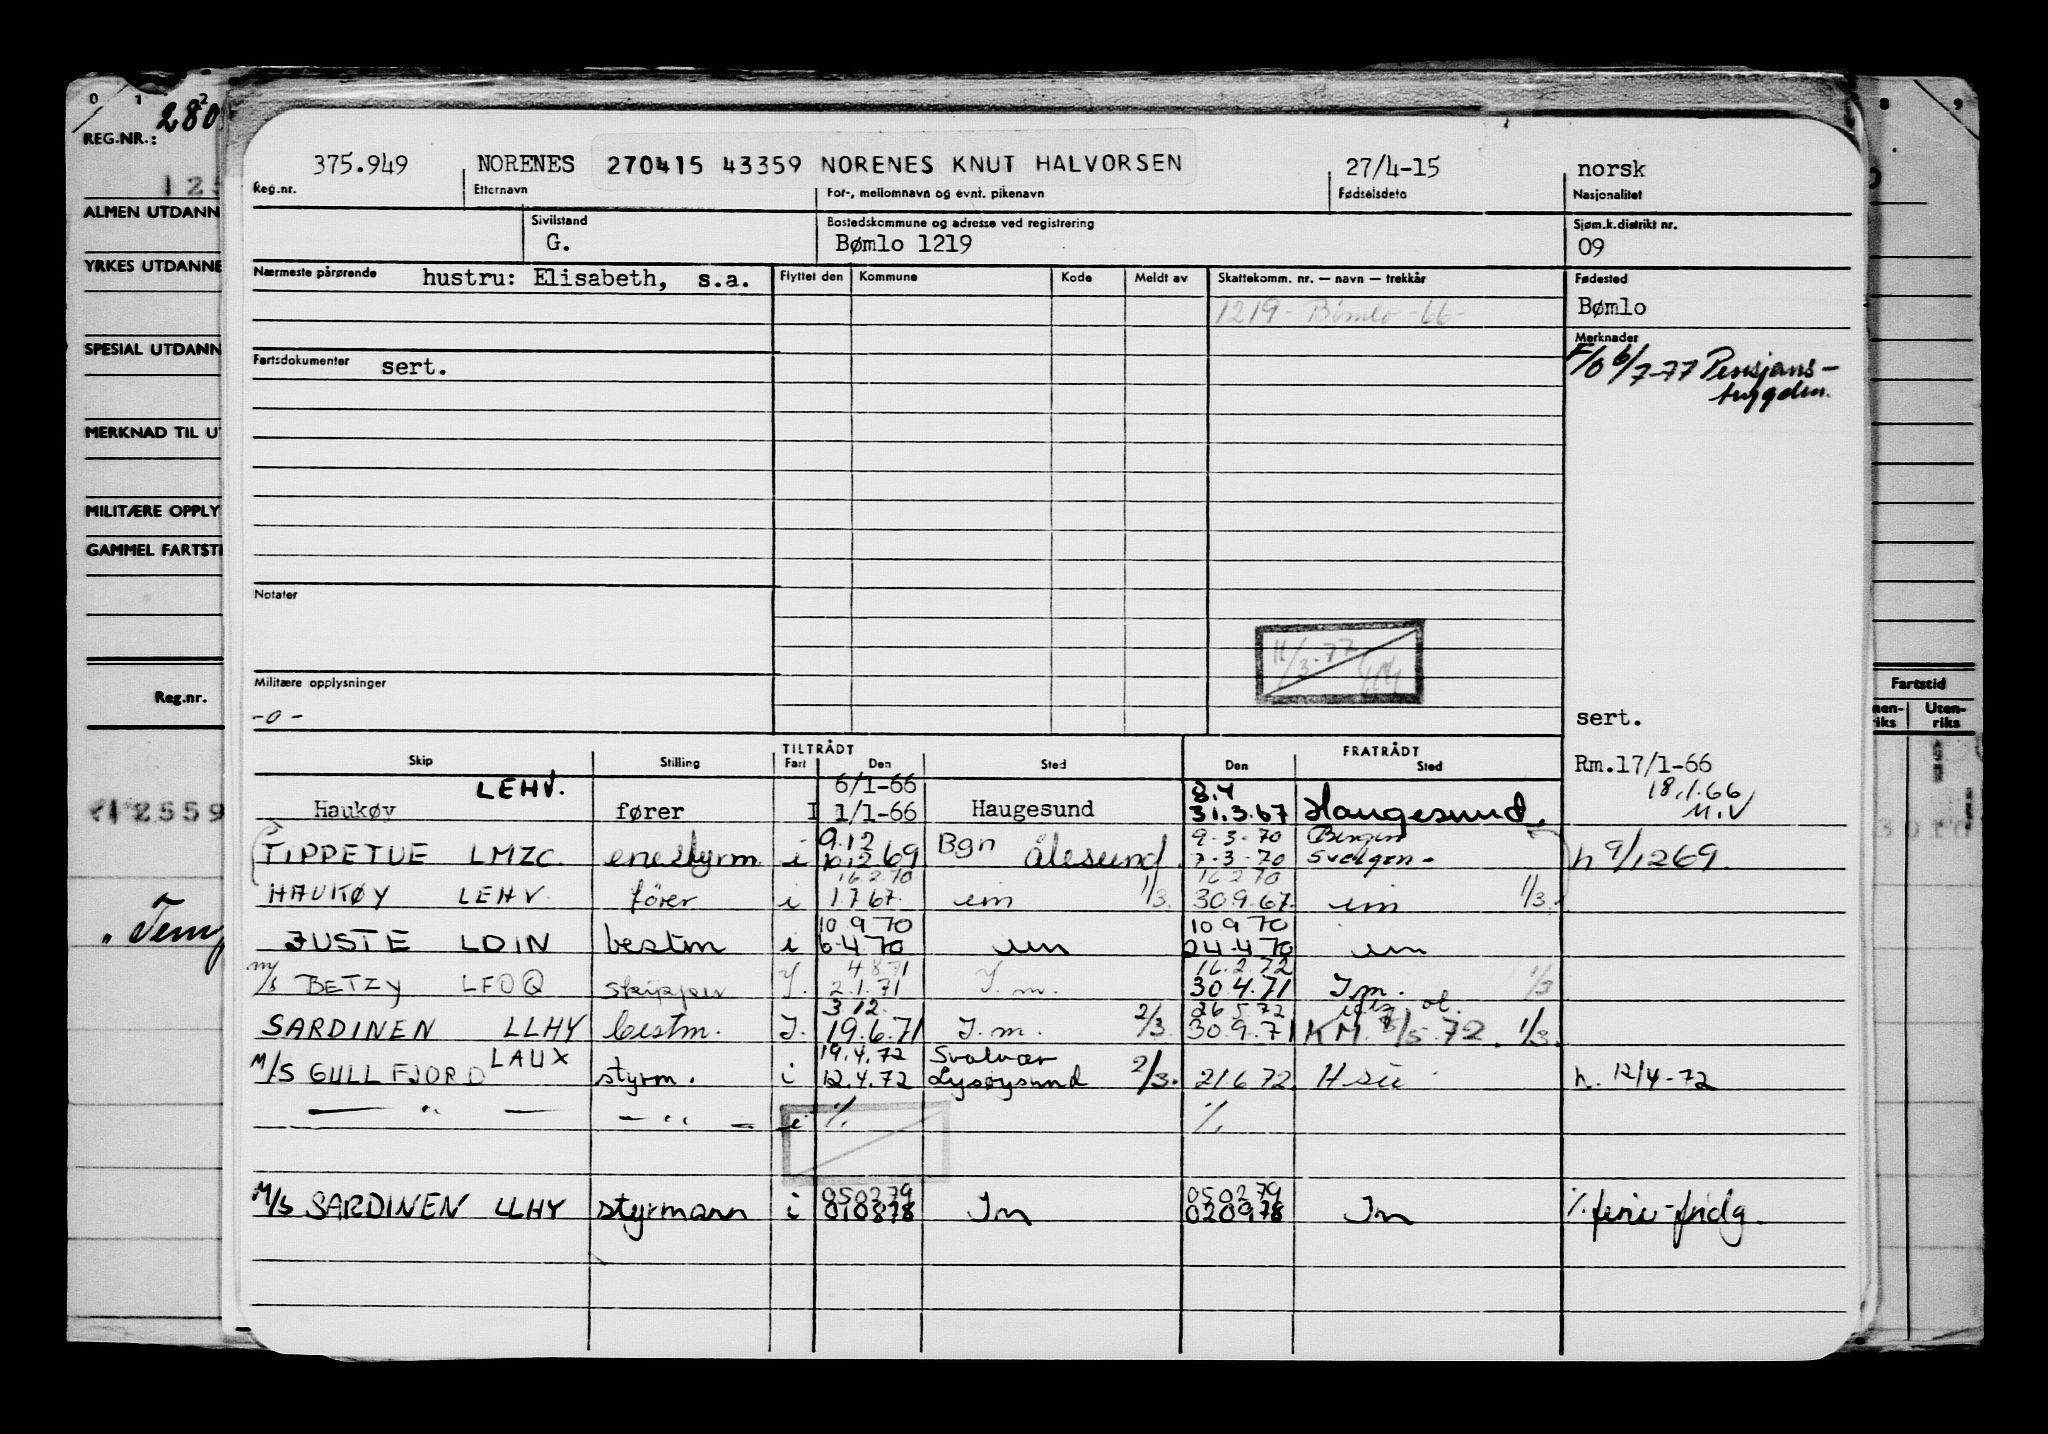 0 1 2
280
REG.NR.:
ALMEN UTDANN
YRKES UTDANNE
SPESIAL UTDANN
MERKNAD TIL U
MILITÆRE OPPLY
GAMMEL FARTSTI
Reg.nr.
12559
8 9
Fartstid
Uten-
riks
375.949 NORENES 270415 43359 NORENES KNUT HALVORSEN 27/4-15 norsk
Reg.nr. Etternavn For-, mellomnavn og evnt. pikenavn Fødselsdato Nasjonalitet
Sivilstand Bostedskommune og adresse ved registrering Sjøm.k.distrikt nr.
G. Bømlo 1219 09
Nærmeste pårørende hustru: Elisabeth, s.a. Flyttet den Kommune Kode Meldt av Skattekomm. nr. — navn — trekkår Fødested
1219 - Bømlo - 66 - Bømlo
Merknader
Fartsdokumenter sert. F/O 6/7-77 Pensjons-
trygden.
Notater
11/3-77
Militære opplysninger
-o- sert.
TILTRÅDT FRATRÅDT
Skip Stilling Fart Den Sted Den Sted Rm.17/1-66
LEHV. 6/1-66 8.4 18.1.66
Haukøy fører I 1/1-66 Haugesund 31.3.67 Haugesund. M.V
9.12 Bgn 9-3-70 Bergen
TIPPETUE LMZC. enestyrm i 10.12 69 Ålesund 7-3-70 Svelgen - h 9/12 69.
16.2.70 16 2 70
HAUKØY LEHV fører i 1.7 67. im 1/3. 30 9.67. im 1/3.
10 9 70 10 9 70
JUSTE LDIN bestm i 6-4.70 im 24-4.70 im
4 8 71 16.2.72
m/s BETZY LFOQ skipper I. 2.1.71 I.m. 30.4.71 I.m. 1/3
3.12. 26 5 72
SARDINEN LLHY bestm. I. 19.6.71 I.m. 2/3. 30.9.71 KM. 8/5.72. 1/3.
LAUX 19.4.72 Svolvær
M/S GULLFJORD styrm. i 12.4.72 Lysøysund 2/3. 21.6.72. h. 12/4-72
— " — — " — i % %
050279 050279
M/S SARDINEN LLHY styrmann i 010878 Im 020978 Im %. ferie-fridg.